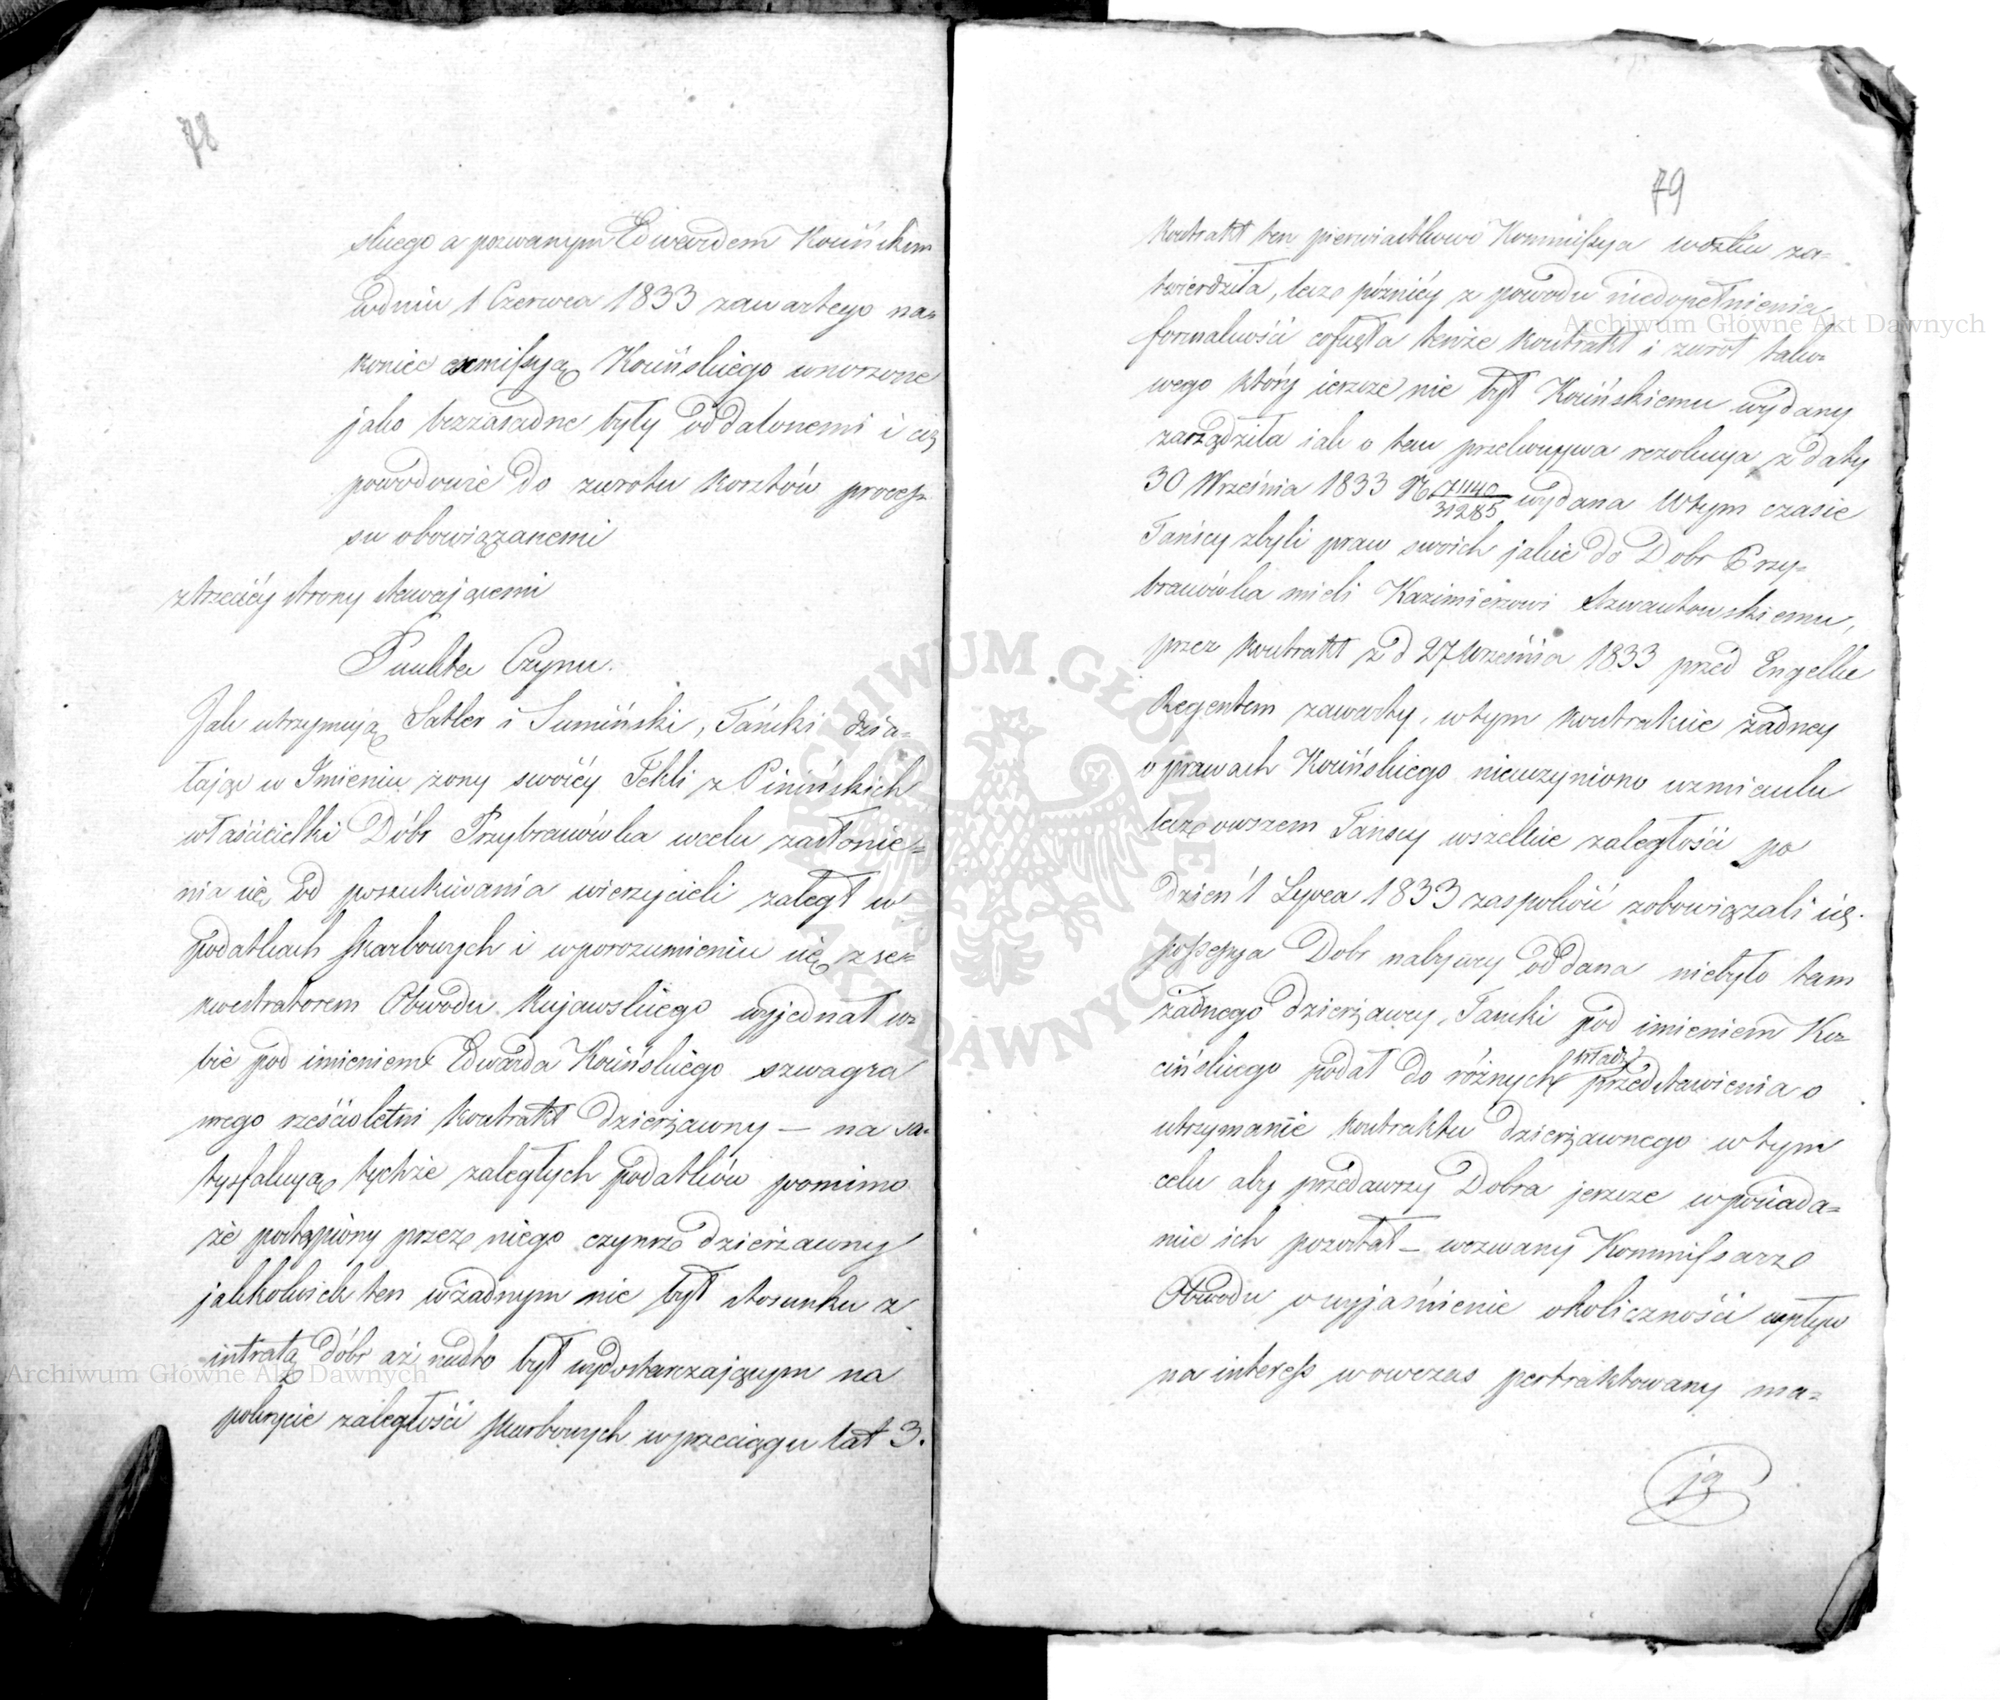 78
skiego a pozwanym Edwardem Kocińskim
wdniu 1 Czerwca 1833 zawartego na=
koniec exmissyą Kocińskiego wnorzone
jako bezzasadne były oddalonemi i ciż
powodowie do zwrotu kosztów proces=
su obowiązanemi
ztrzeciéy strony stawaiącemi
Punkta Czynu.
Jak utrzymują Satler i Sumiński, Tański dzia=
łając w Imieniu żony swoiéy Tekli z Pinińskich
właścicielki Dóbr Przybranówka wcelu zasłonie=
nia się od poszukiwania wierzycieli zaległ w
podatkach skarbowych i wporozumieniu się z se=
kwestratorem Obwodu Kujawskiego wyjednał so=
bie pod imieniem Edwarda Kocińskiego szwagra
swego sześcioletni kontrakt dzierżawny — na sa=
tysfakcyą tychże zaległych podatków pomimo
że postąpiony przez niego czynsz dzierżawny
jakkolwiek ten wżadnym nie był stosunku z
intratą dóbr aż nadto był wydostarczającym na
pokrycie zaległości skarbowych wprzeciągu lat 3.
79
Kontrakt ten pierwiastkowo Kommissya wosku za=
twierdziła, lecz późniéy z powodu niedopełnienia
formalności cofnęła tenże kontrakt i zwrot tako=
wego który ieszcze nie był Kocińskiemu wydany
zarządziła iak o tem przekonywa rezolucya z daty
30 Września 1833 N 71140/31285 wydana Wtym czasie
Tańscy zbyli praw swoich jakie do Dobr Przy=
branówka mieli Kazimierzowi Szwantowskiemu,
przez kontrakt z d 27 Września 1833 przed Engelke
Regentem zawarty, wtym kontrakcie żadney
o prawach Kocińskiego nieuczyniono wzmianki
lecz owszem Tańscy wszelkie zaległości po
dzień 1 Lipca 1833 zaspokoić zobowiązali się.
possessya Dobr nabywcy oddana niebyło tam
żadnego dzierżawcy, Tański pod imieniem Ko=
cińskiego podał do różnych władz przedstawienia o
utrzymanie kontraktu dzierżawnego wtym
celu aby przedawszy Dobra jeszcze wposiada=
nie ich pozostał — wezwany Kommissarz
Obwodu o wyjaśnienie okoliczności wpływ
na interess wowczas pertraktowany ma=
ją
ARCHIWUM GŁÓWNE AKT DAWNYCH
Archiwum Główne Akt Dawnych
Archiwum Główne Akt Dawnych